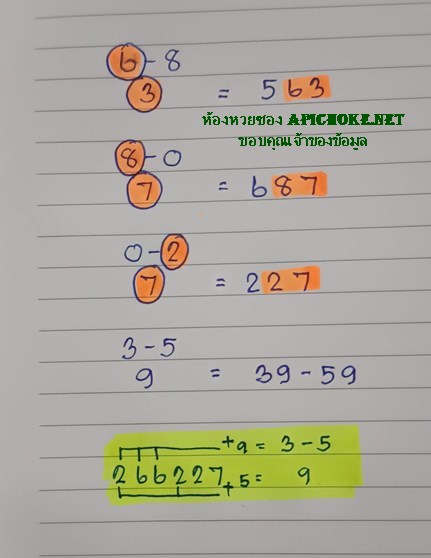 6-8
3 = 563
ห้องหวยซอง APICHOKE.NET
ขอบคุณเจ้าของข้อมูล
8-0
7 = 687
0-2
7 = 227
3-5
9 = 39-59
+9 = 3-5
266227
+5 = 9